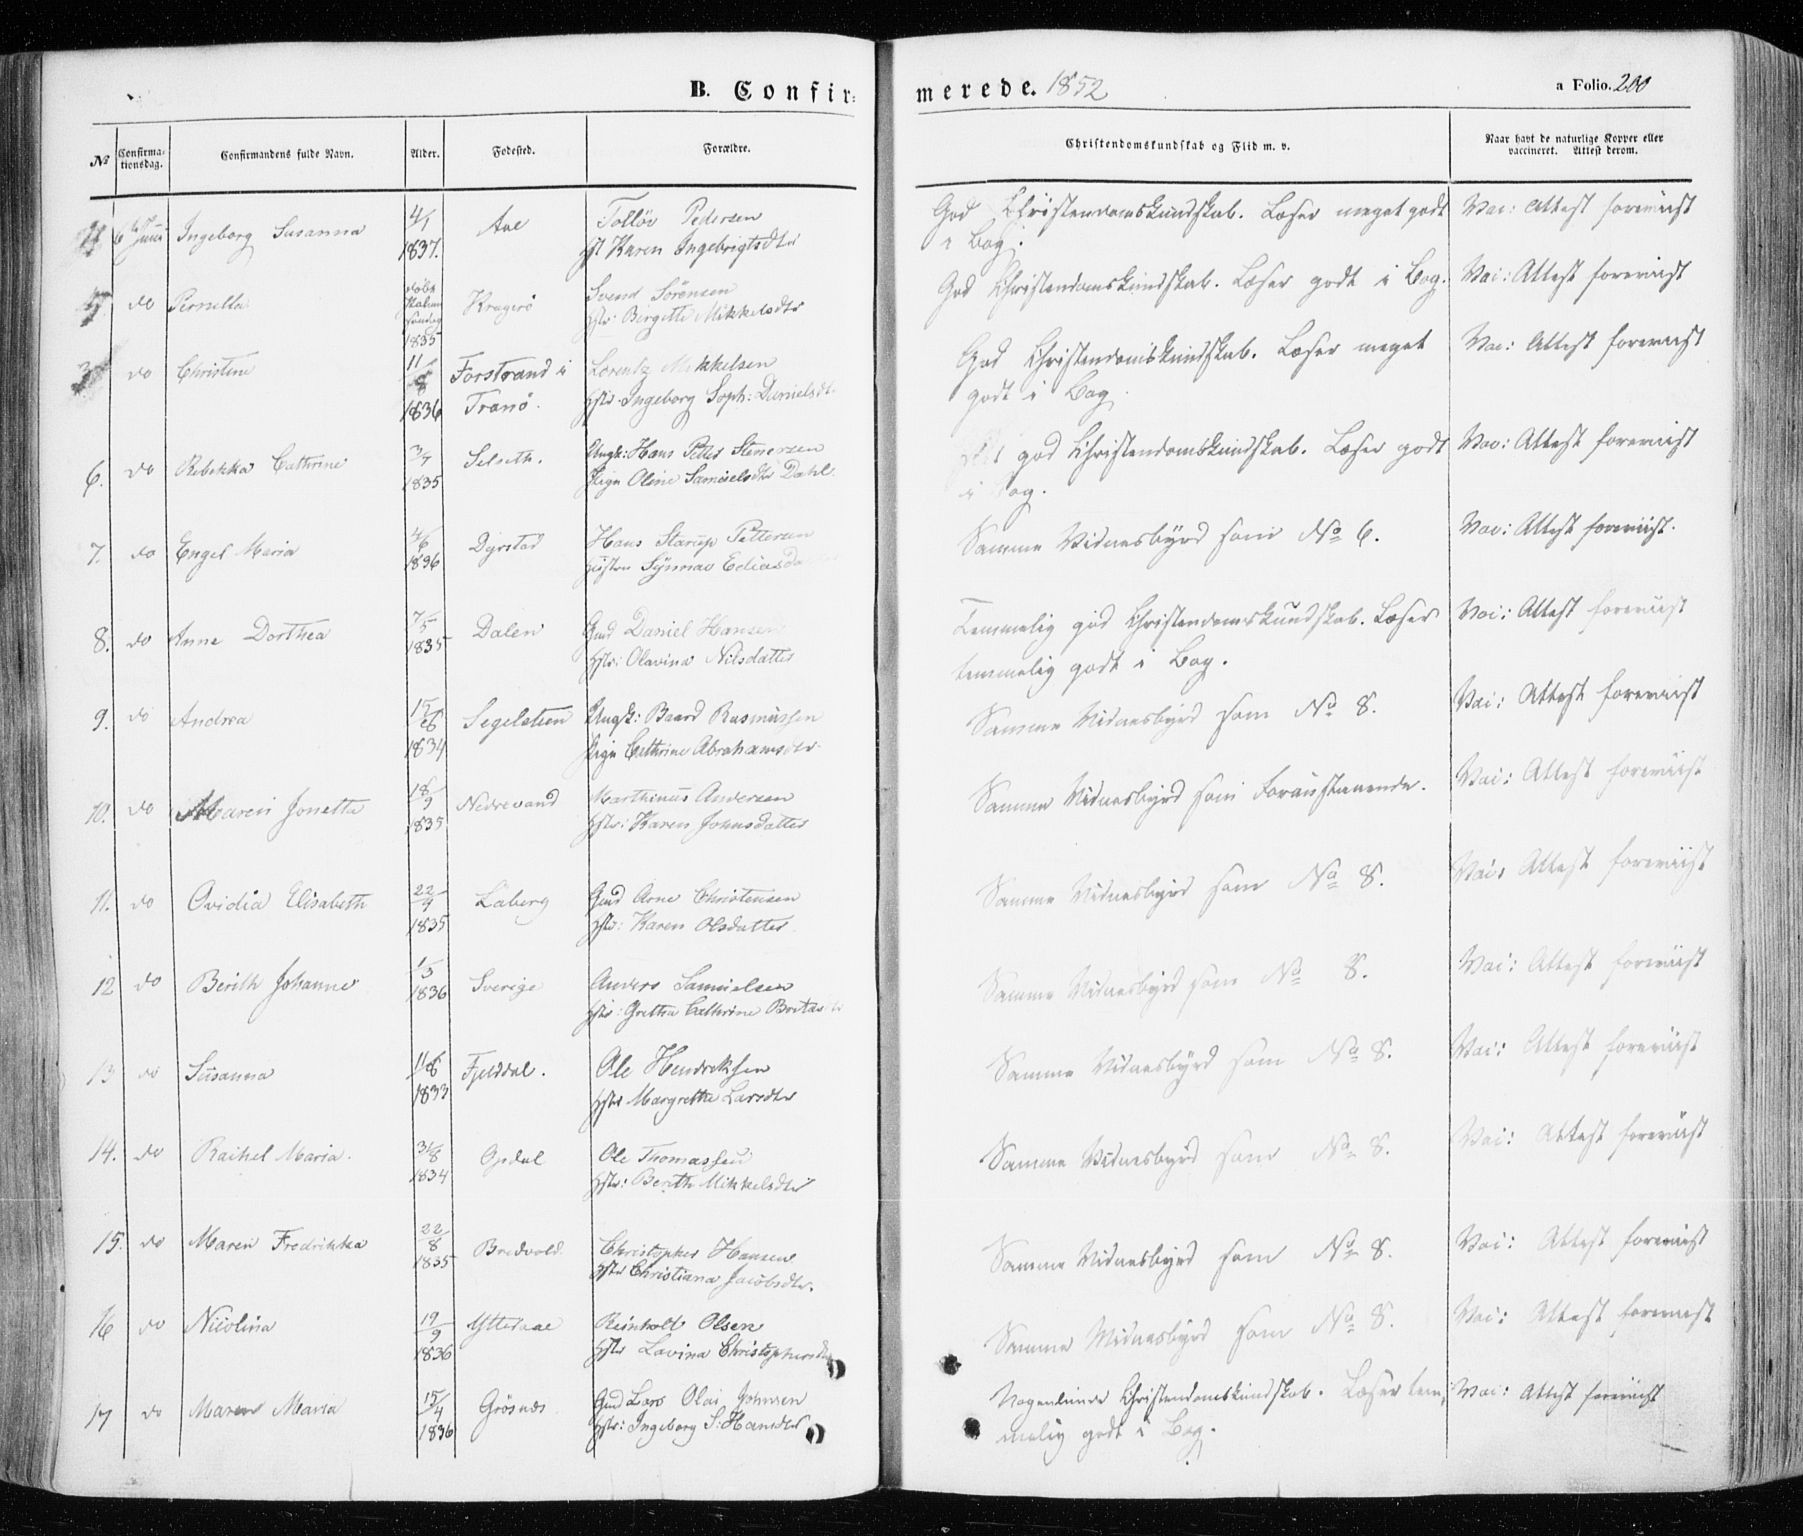 B. Confir=
merede. 1852
a Folio. 200
No Confirma=tionsdag. Confirmandens fulde Navn. Alder. Fødested. Forældre. Christendomskundskab og Flid m. v. Naar havt de naturlige Kopper eller vaccineret. Attest derom.
6te Juni Ingeborg Susanna 4/1 Aae Tolløv Pedersen God Christendomskundskab. Læser meget godt Vac: Attest foreviist
1837. Hst Karen Ingebrigtsdtr i Bog.
do Pernella Kragerø Svend Sörensen God Christendomskundskab. Læser godt i Bog. Vac: Attest foreviist
1835 Hstr: Bergitte Mikkelsdtr
do Christine 11/8 Forstrand i Lorentz Mikkelsen God Christendomskundskab. Læser meget Vac: Attest foreviist
1836 Tranö. Hstr. Ingeborg Soph: Danielsdt. godt i Bog.
6. do Rebekka Cathrine 3/7 Selseth. Ungk: Hans Peter Stenersen god Christendomskundskab. Læser godt Vac: Attest foreviist
1835 Pige Oline Samuelsdtr Dahl. i Bog.
7. do Engel Maria 4/6 Dyrstad Hans Starup Pettersen Samme Vidnesbyrd som No 6. Vac: Attest foreviist.
1836 Hustru Synnav
8. do Anne Dorthea 7/5 Dalen Gmd Daniel Hansen Temmelig god Christendomskundskab. Læser Vac: Attest foreviist
1835 Hstr: Olavina Nilsdatter temmelig godt i Bog.
9. do Andrea Segelsteen Ungk: Baard Rasmussen Samme Vidnesbyrd som No 8. Vac: Attest foreviist
1834 Pige Cathrine Abrahamsdtr.
10. do Maren Jonetta 18/9 Nedrevand Marthinus Andersen Samme Vidnesbyrd som Foranstaaende. Vac: Attest foreviist
1835 Hstr: Karen Johnsdatter
11. do Ovidia Elisabeth 22/4 Laberg Gmd Arne Christensen Samme Vidnesbyrd som No 8. Vac: Attest foreviist
1835 Hstr: Karen Olsdatter.
12 do Berith Johanne 1/3 Sverige Anders Samuelsen Samme Vidnesbyrd som No 8. Vac: Attest foreviist
1836 Hstr: Gretha Cathrine
13 do Susanna 11/8 Fjelddal. Ole Hendriksen Samme Vidnesbyrd som No 8. Vac: Attest foreviist
1833 Hstr Margrethe Larsdtr
14. do Rachel Maria. 31/8 Opdal Ole Thomassen Samme Vidnesbyrd som No 8. Vac: Attest foreviist
1834 Hstr: Berith Mikkelsdtr
15. do Maren Fredrikka 22/8 Bredvold. Christopher Hansen Samme Vidnesbyrd som No 8. Vac: Attest foreviist
1835 Hstr Christiana Jacobsdtr.
16 do Nicolina 19/9 Ytteraae Reinholt Olsen Samme Vidnesbyrd som No 8. Vac: Attest foreviist
1836 Hstr Lovina Christophersdtr
17 do Maren Maria 15/4 Grösnæs Gmd Lars Olai Johnsen Nogenlunde Christendomskundskab. Læser tem= Vac: Attest foreviist
1836 Hstr: Ingeborg S: Hansdtr melig godt i Bog.